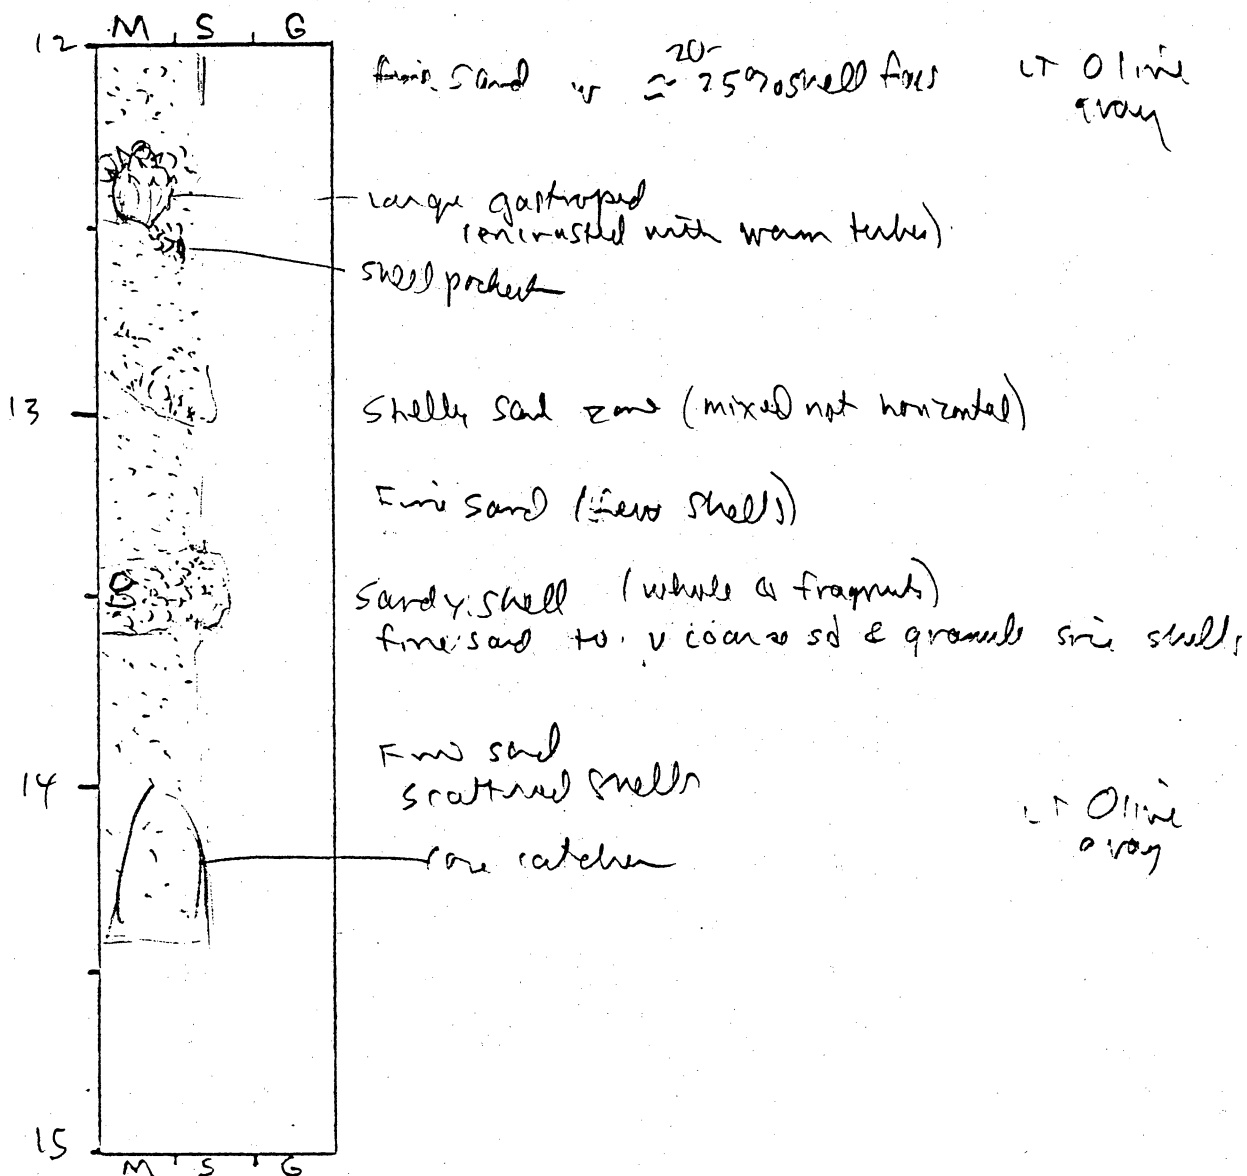 M S G
12
20-
fine sand w ≈ 25% shell frags
LT Olive
gray
large gastropod
(encrusted with worm tubes)
shell pocket
13
Shelly sand zone (mixed not horizontal)
Fine sand (few shells)
Sandy shell (whole & fragments)
fine sand to v coarse sd & granule size shells
Fine sand
scattered shells
14
LT Olive
gray
core catcher
15
M S G